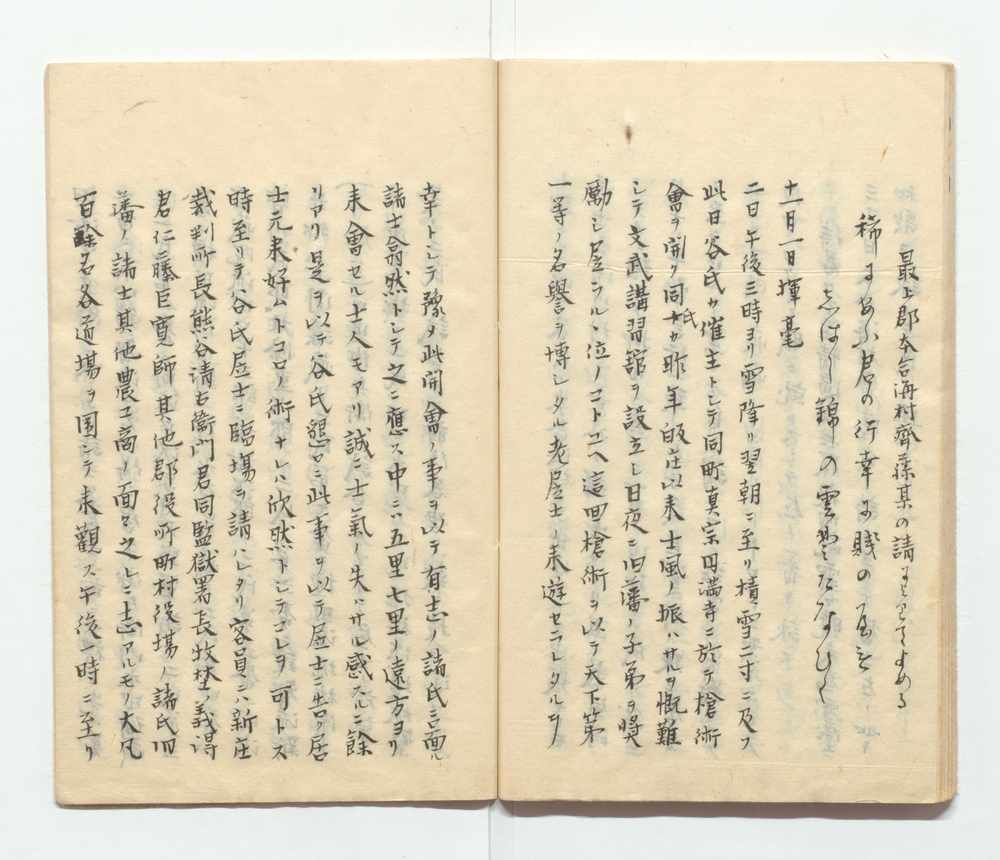 最上郡本合海村齊藤某の請によりてよめる
稀にあふ君の行幸に賎の屋を
しはし錦の雲そたなひく
十一月一日揮毫
二日午後三時ヨリ雪降リ翌朝ニ至リ積雪二寸ニ及フ
此日谷氏カ催主トシテ同町真宗円満寺ニ於テ槍術
會ヲ開ク同氏カ昨年皈庄以耒士風ノ振ハサルヲ慨難
シテ文武講習舘ヲ設立し日夜ニ旧藩ノ子弟ヲ奬
勵シ居ラルヽ位ノコトユヘ這回槍術ヲ以テ天下第
一等ノ名譽ヲ博シタル老居士ノ耒遊セラレタルヲ
幸トシテ豫メ此開會ノ事ヲ以テ有志ノ諸氏ニ面ル
諸士翕然トシテ之ニ應ス中ニハ五里七里ノ遠方ヨリ
耒會セル士人モアリ誠ニ士氣ノ失ハサル感スルニ餘
リアリ是ヲ以テ谷氏懇ロニ此事ヲ以テ居士ニ告ク居
士元耒好ムトコロノ術ナレハ欣然トシテコレヲ可トス
時至リテ谷氏居士ニ臨塲ヲ請ハレタリ客員ニハ新庄
裁判所長熊谷清右衞門君同監獄署長牧埜義得
君仁藤巨寛師其他郡役所町村役塲ノ諸氏旧
藩ノ諸士其他農工商ノ面々之レニ志アルモノ大凡
百餘名各道塲ヲ囲ンテ耒觀ス午後一時ニ至リ